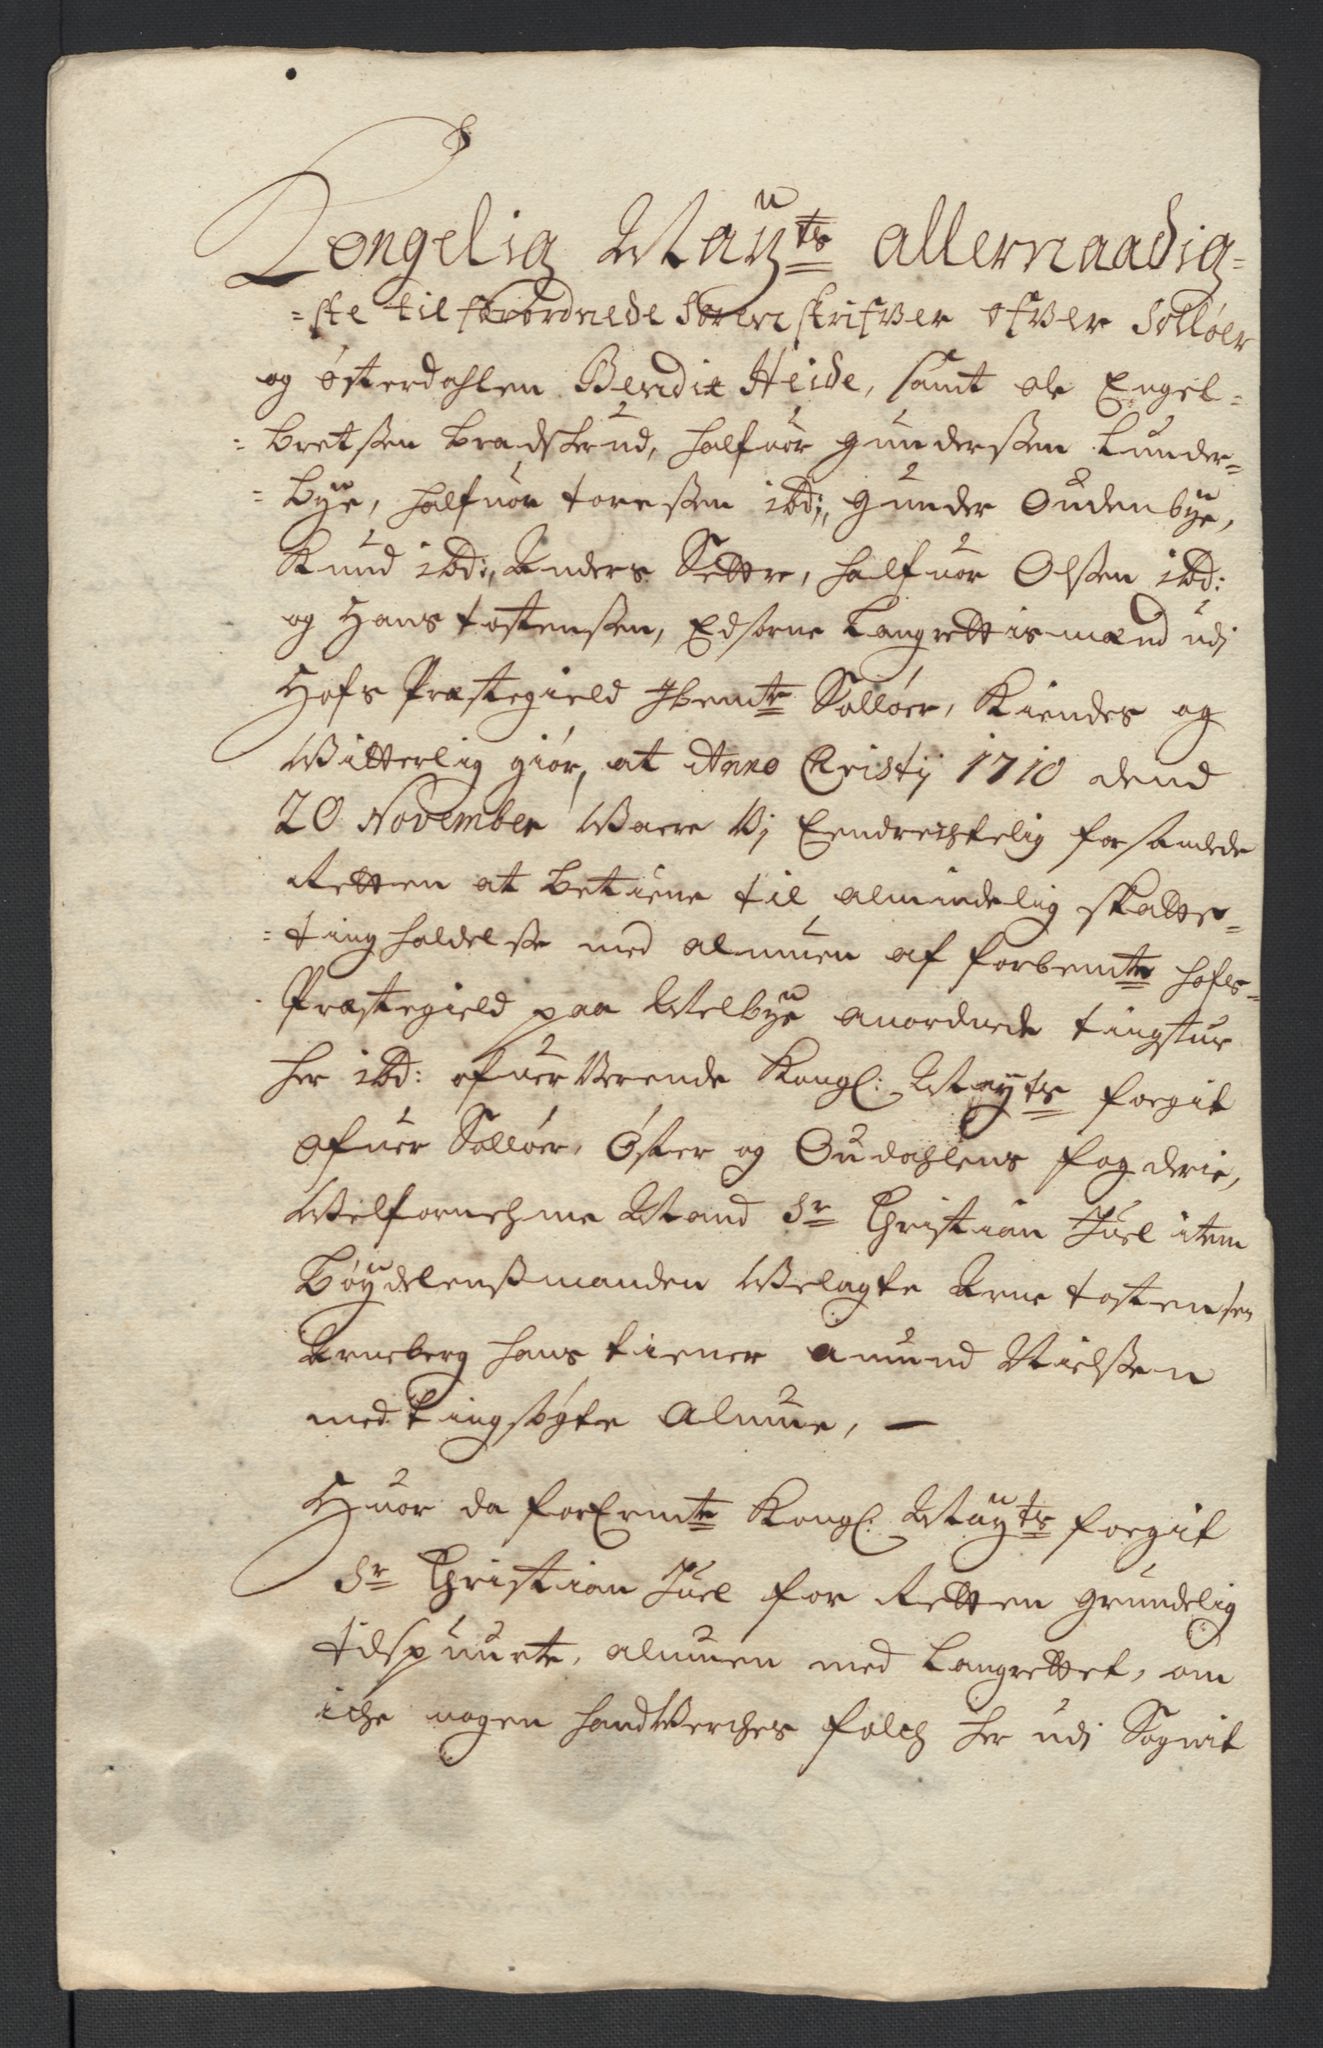 Kongelig Maÿ:ts allernaadig=
=ste til forordnede Sorenskrifver ofver Solløer
og Østerdahlen Bendix Heide, samt ole Engel=
=bretßen bradsterud, halfuor gunderßen Lunder=
=bÿe, halfuor toreßen ibd:, gunder Oudenbÿe,
Knud ibd:, Anders Settre, halfuor Olßen ibd:
og Hans tostenßen, Edsorne Laugrettismænd udj
Hofs Præstegield ibemte Solløer, Kiendes og
Witterlig giør, at Anno Christij 1710 dend
20 November Waare Wj Eendrechtelig forsamlede
Retten at betiene til almindelig skatte=
=ting holdelße med almuen af forbemte hofs=
Præstegield paa Melbÿe anordnede tingstue
her ibd: ofuerWerende Kongl: Mayts foegit
ofuer Solløer, Øster og Oudahlens fogderie,
Welfornehme Mand Sr Christian Juel item
bøÿdelenßmanden Welagte Arne tostensen
Arneberg hans tiener amund Nielßen
med tingsøgte Almue, —
Huor da forErmte Kongl. Maÿts foegit
Sr Christian Juel for Retten grundelig
tilspuurte, almuen med Laugrettet, om
iche nogen handWerches folch her udj Sognit